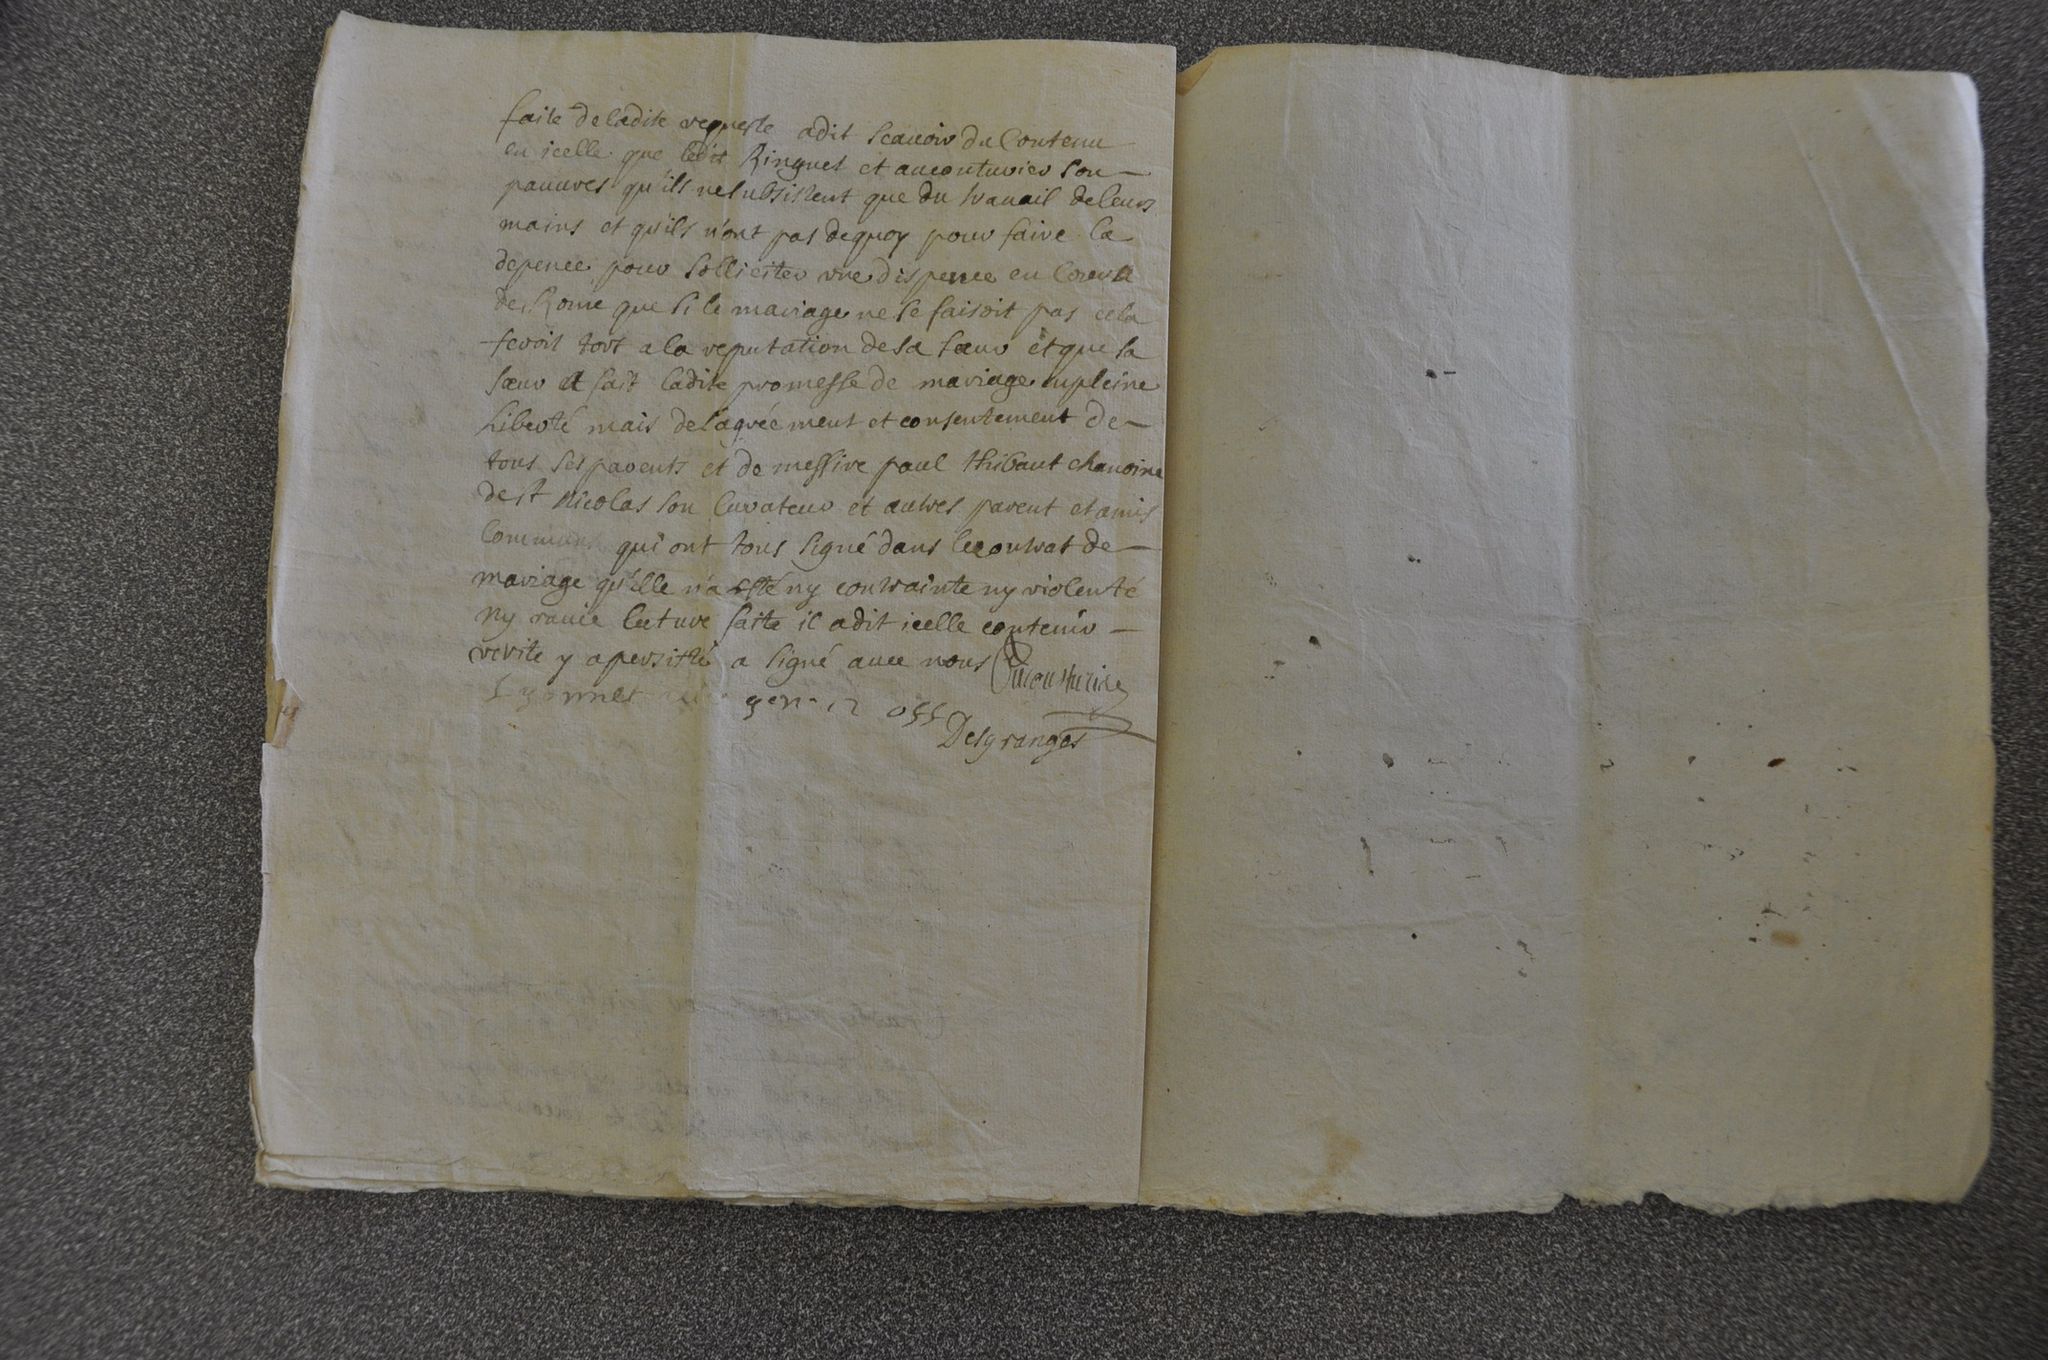 faite de ladite requeste adit scauoir du Contenu
en icelle que ledit Ringuet et aucouturier son
pauures qu'ils ne subsistent que du trauail de leurs
mains et qu'ils n'ont pas dequoy pour faire la
depence pour solliciter vne dispence en Cour
de Rome que si le mariage ne se faisoit pas cela
feroit tort a la reputation de sa sœur et que sa
sœur a fait ladite promesse de mariage en pleine
liberté mais de l'agréement et consentement de
tous ses parents et de messire paul thibaut chanoine
de st Nicolas son Curateur et autres parent et amis
Communs qui ont tous signé dans le contrat de
mariage qu'elle n'a esté ny contrainte ny violenté
ny rauie lecture faite il a dit icelle contenir
verite y a persisté a signé auec nous
Desgranges